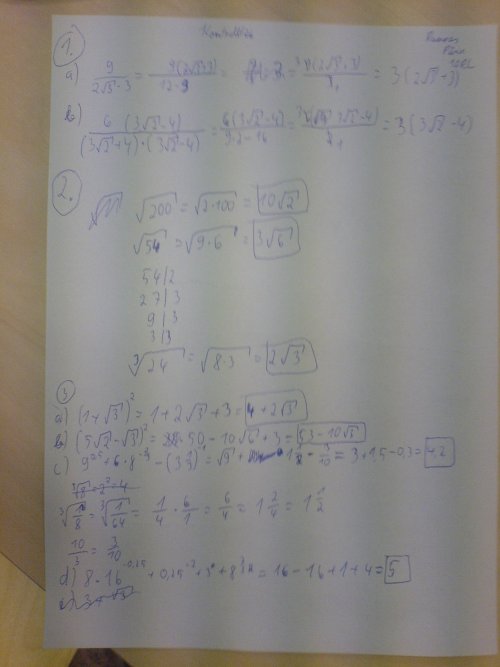 Kontrolltöö
1.
a) 9 / (2√3 - 3) = 9(2√3+3) / (12 - 9) = 9(2√3+3) / 3 = 3(2√3+3)
b) 6 (3√2-4) / (3√2+4)·(3√2-4) = 6(3√2-4) / (9·2-16) = / 2 = 3(3√2-4)
2.
√200 = √2·100 = 10√2
√54 = √9·6 = 3√6
54|2
27|3
9|3
3|3
³√24 = √8·3 = 2√3
3
a) (1+√3)² = 1+2√3+3 = 4+2√3
b) (5√2-√3)² = 50-10√6+3 = 53-10√6
c) 9^0,5 + 6·8 - (3 1/3) = √9 + 1 1/2 - 3/10 = 3+1,5-0,3 = 4,2
= 2² = 4
³√1/64 = 1/4 · 6/1 = 6/4 = 1 2/4 = 1 1/2
10/3 = 3/10
d) 8·16^-0,25 + 0,25^-2 + + 8 = 16-16+1+4 = 5